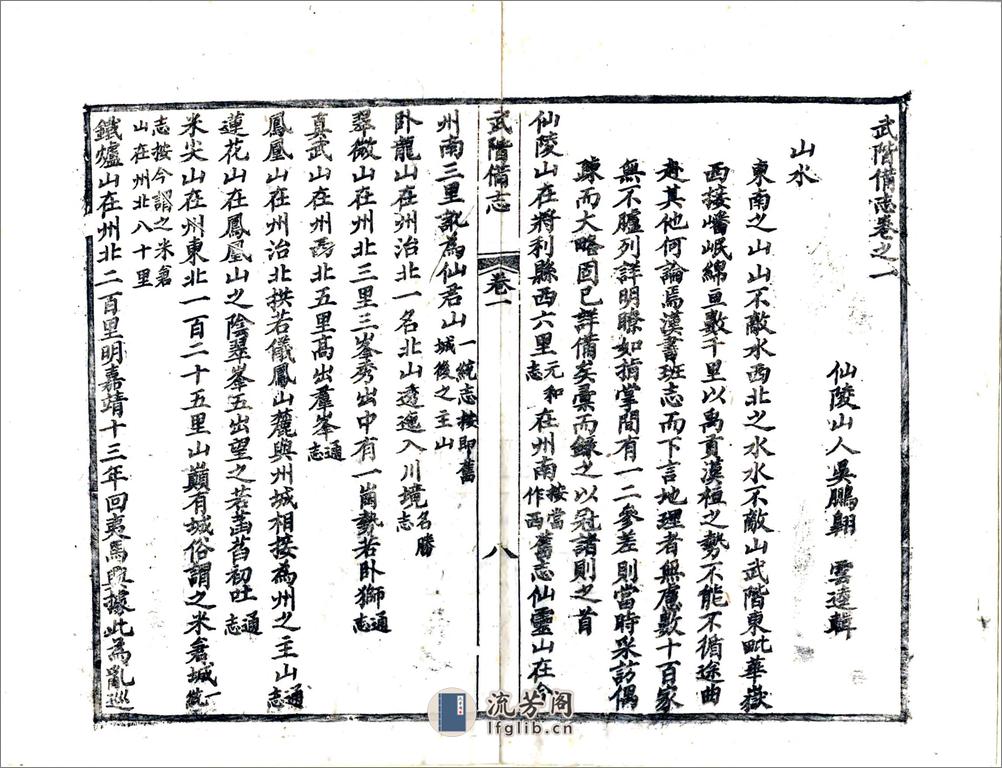 武階備志卷之一
仙陵山人吳鵬翺　雲逵輯
山水
東南之山山不敵水西北之水水不敵山武階東毗華嶽
西接嶓岷綿亘數千里以禹貢漢桓之勢不能不循途曲
赴其他何論焉漢書班志而下言地理者無慮數十百家
無不臚列詳明瞭如指掌間有一二參差則當時采訪偶
疎而大略固已詳備矣彙而錄之以冠諸則之首
仙陵山在將利縣西六里元和志在州南按當作西舊志仙靈山在今
武階備志
卷一
八
州南三里訛為仙君山一統志按即舊城後之主山
卧龍山在州治北一名北山透迤入川境名勝志
翠微山在州北三里三峯秀出中有一崮勢若卧獅通志
真武山在州西北五里高出羣峯通志
鳳凰山在州治北拱若儀鳳山麓與州城相接為州之主山通志
蓮花山在鳳凰山之陰翠峯五出望之若菡萏初吐通志
米尖山在州東北一百二十五里山巔有城俗謂之米倉城一統
志按今謂之米倉山在州北八十里
鐵爐山在州北二百里明嘉靖十三年回夷馬興據此為亂巡
流芳阁
lfglib.cn